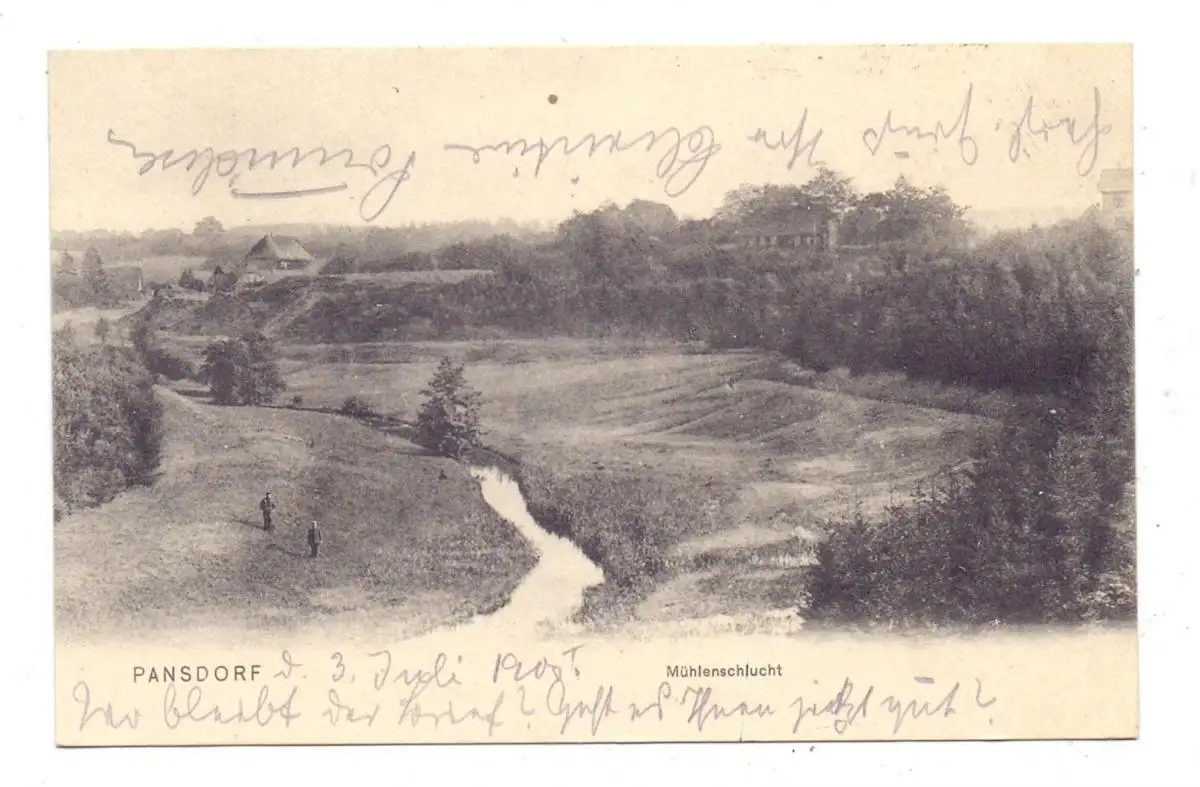 PANSDORF d. 3. Juli
Mühlenschlucht
Wo bleibt der Brief? Geht es Ihnen jetzt gut?
Herzl. Gruß Ihr